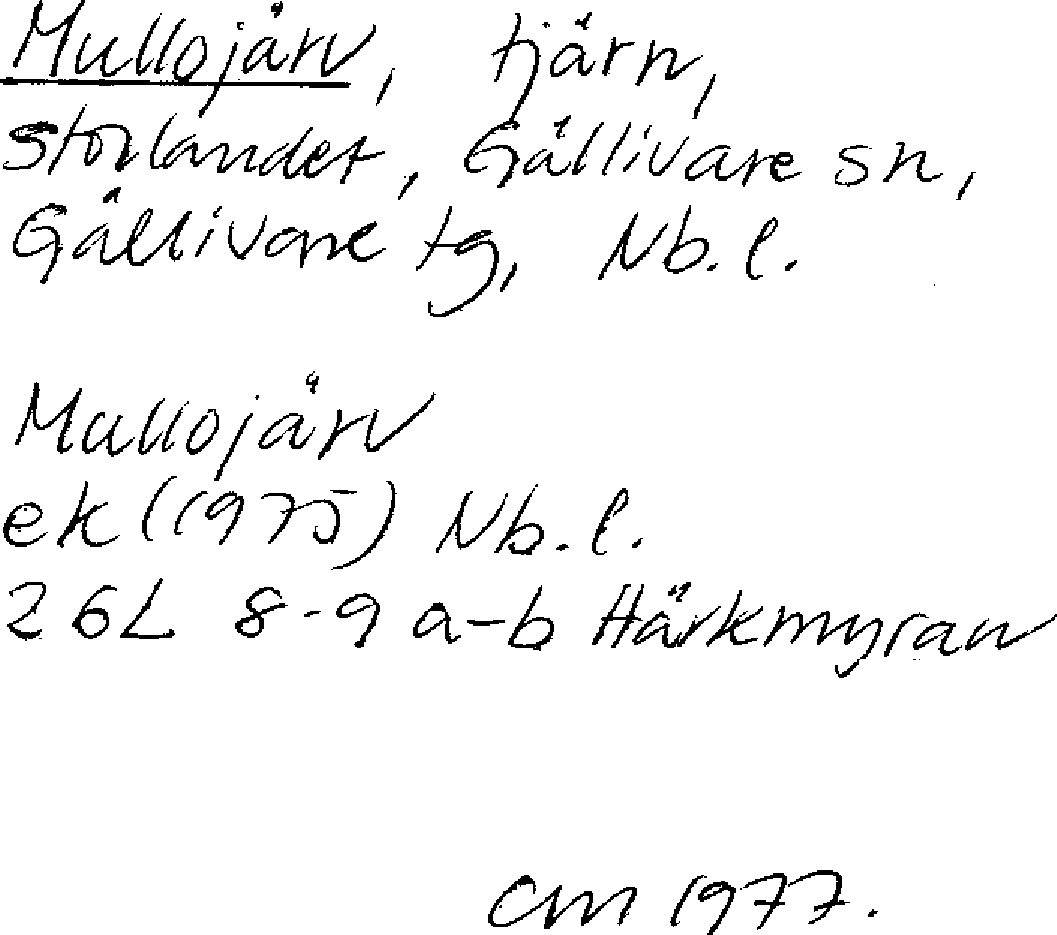 Mullojärv, tjärn,
Storlandet, Gällivare sn,
Gällivare tg, Nb. l.
Mullojärv
ek (1975) Nb. l.
26L 8-9 a-b Härkmyran
CM 1977.